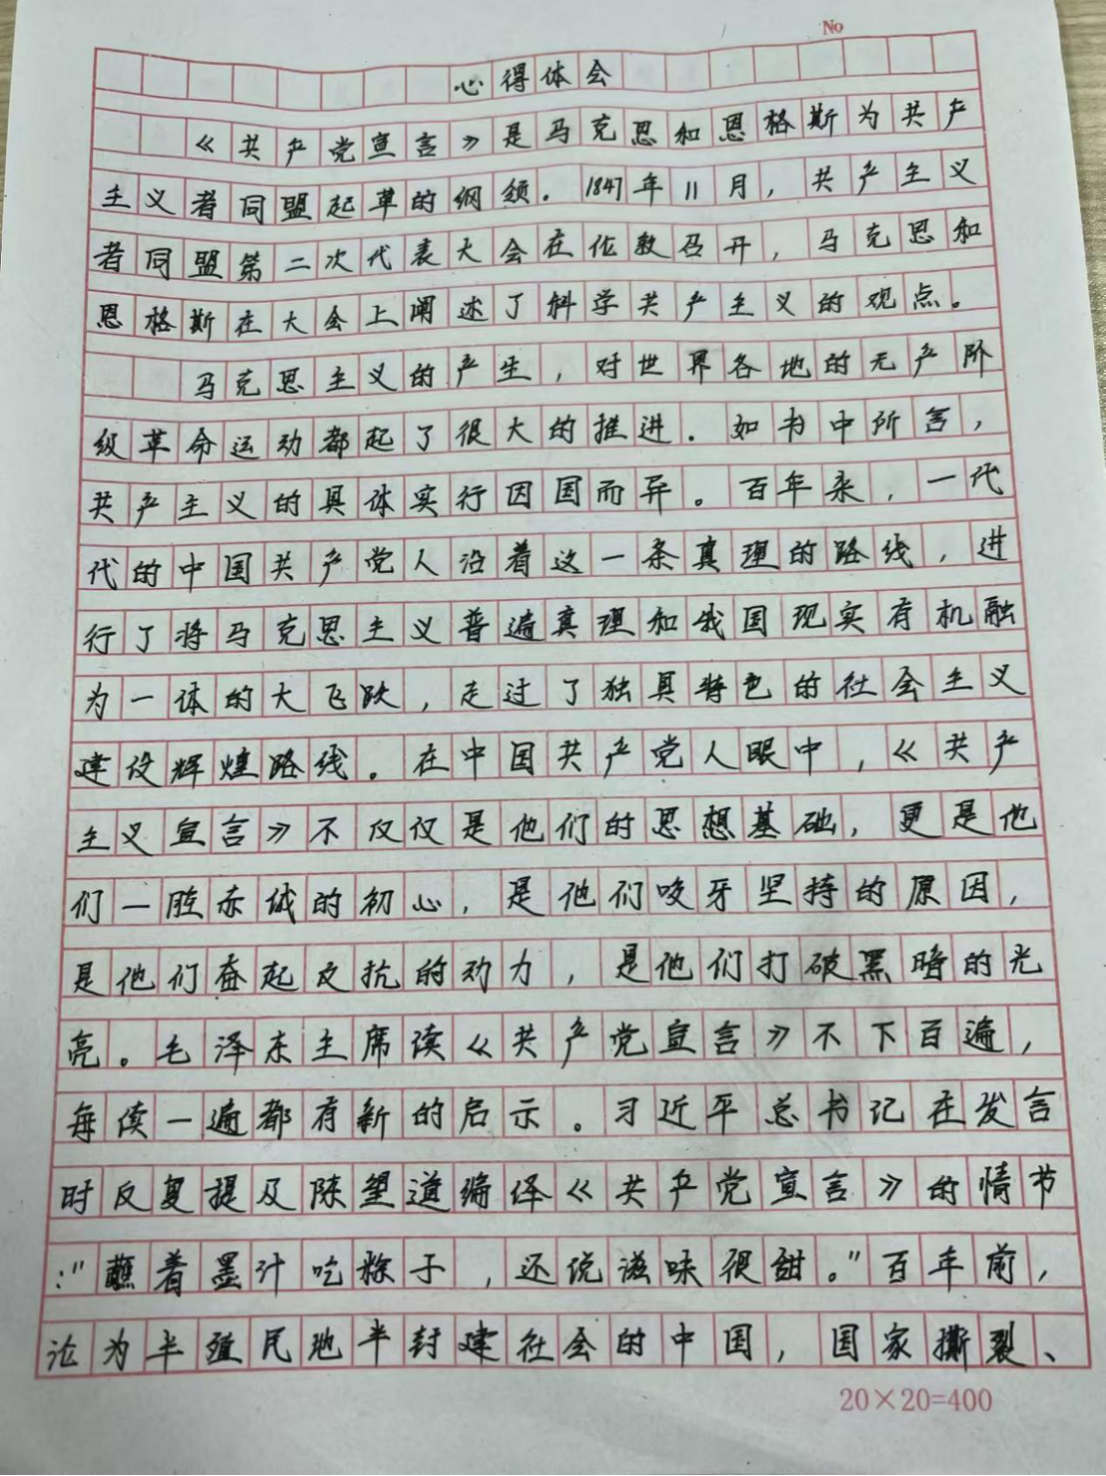 No
心得体会
《共产党宣言》是马克思和恩格斯为共产
主义者同盟起草的纲领。1847年11月，共产主义
者同盟第二次代表大会在伦敦召开，马克思和
恩格斯在大会上阐述了科学共产主义的观点。
马克思主义的产生，对世界各地的无产阶
级革命运动都起了很大的推进。如书中所言，
共产主义的具体实行因国而异。百年来，一代
代的中国共产党人沿着这一条真理的路线，进
行了将马克思主义普遍真理和我国现实有机融
为一体的大飞跃，走过了独具特色的社会主义
建设辉煌路线。在中国共产党人眼中，《共产
主义宣言》不仅仅是他们的思想基础，更是他
们一腔赤诚的初心，是他们咬牙坚持的原因，
是他们奋起反抗的动力，是他们打破黑暗的光
亮。毛泽东主席读《共产党宣言》不下百遍，
每读一遍都有新的启示。习近平总书记在发言
时反复提及陈望道编译《共产党宣言》的情节
："蘸着墨汁吃粽子，还说滋味很甜。"百年前，
沦为半殖民地半封建社会的中国，国家撕裂、
20×20=400